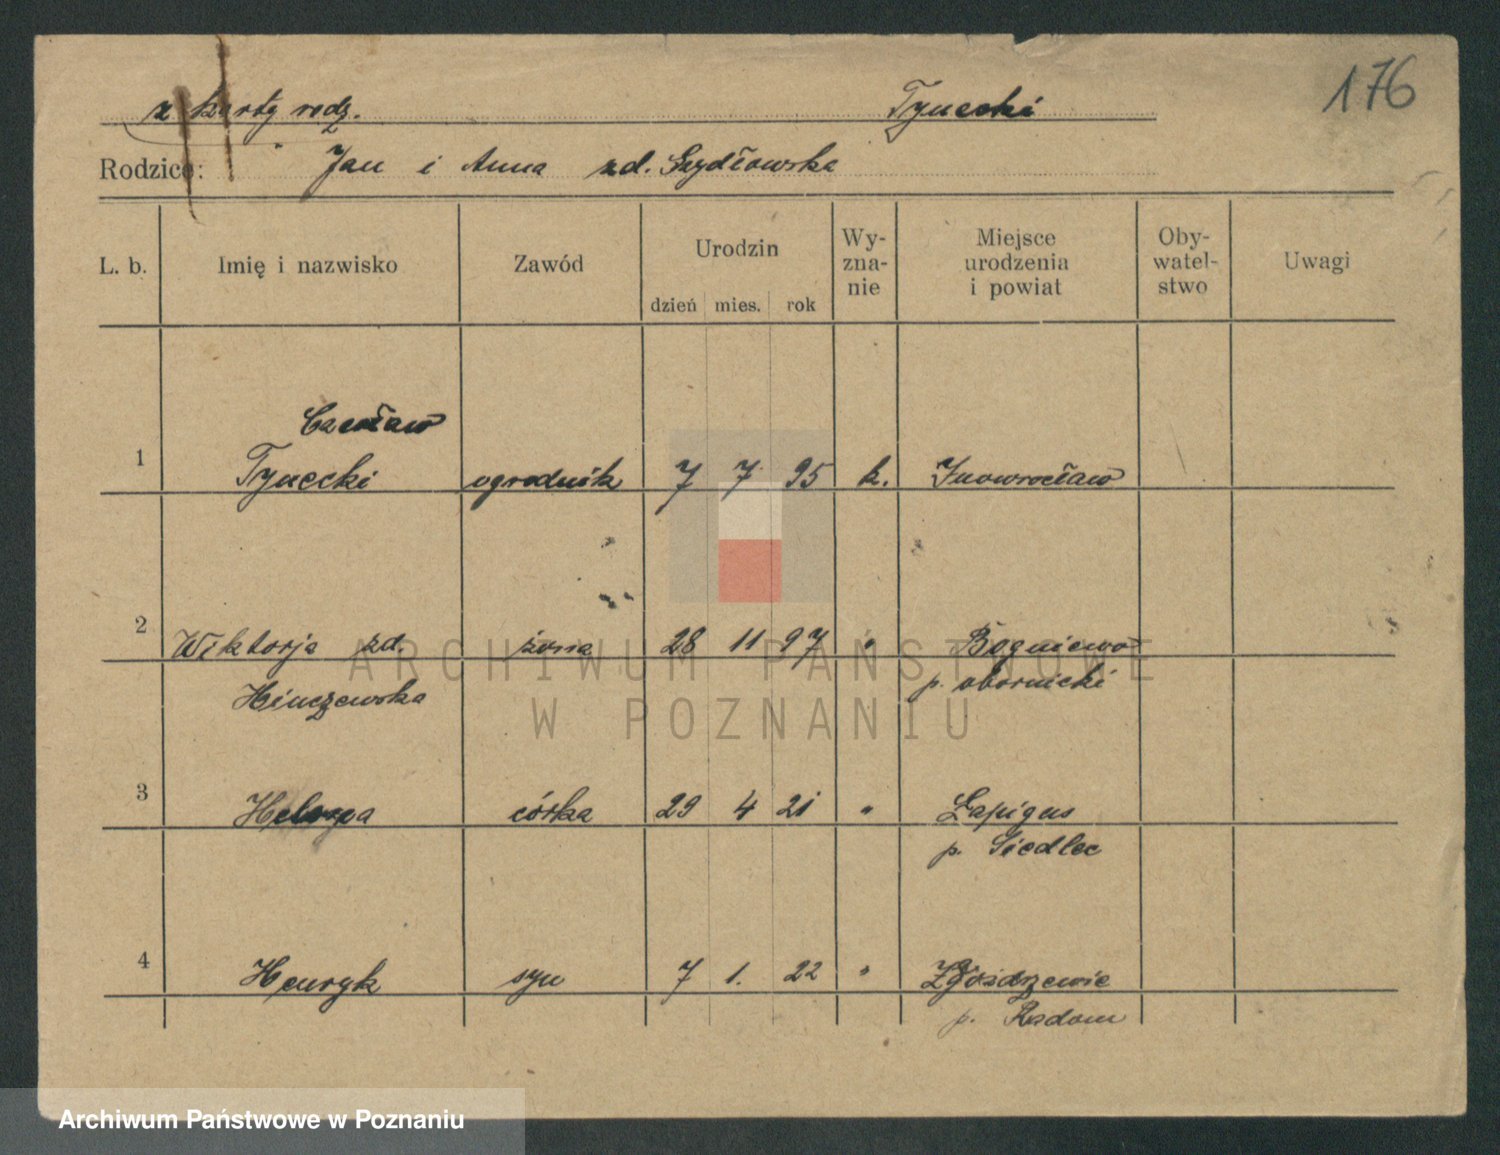 176
z karty rodz. Tynecki
Rodzice: Jan i Anna zd. Szydłowska
L. b. Imię i nazwisko Zawód Urodzin Wy-zna-nie Miejsce urodzenia i powiat Oby-watel-stwo Uwagi
dzień mies. rok
Czesław
1 Tynecki ogrodnik 7 7 95 k. Inowrocław
2 Wiktorja zd. żona 28 11 97 " Bogniewo
Hinczewska p. obornicki
3 córka 29 4 21 " Łapigus
p. Siedlec
4 Henryk syn 7 1. 22 "
p. Radom
ARCHIWUM PAŃSTWOWE
W POZNANIU
Archiwum Państwowe w Poznaniu